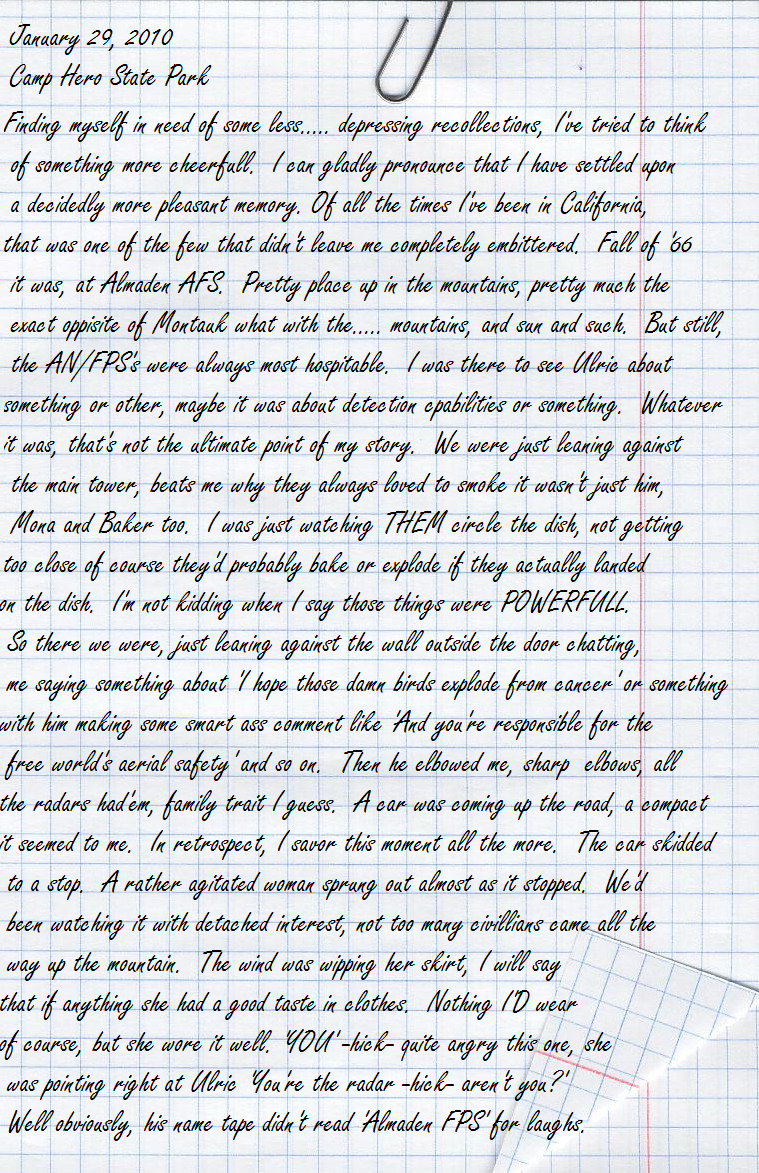 January 29, 2010
Camp Hero State Park
Finding myself in need of some less..... depressing recollections, I've tried to think
of something more cheerfull.  I can gladly pronounce that I have settled upon
a decidedly more pleasant memory. Of all the times I've been in California,
that was one of the few that didn't leave me completely embittered.  Fall of '66
it was, at Almaden AFS.  Pretty place up in the mountains, pretty much the
exact oppisite of Montauk what with the..... mountains, and sun and such.  But still,
the AN/FPS's were always most hospitable.  I was there to see Ulric about
something or other, maybe it was about detection cpabilities or something.  Whatever
it was, that's not the ultimate point of my story.  We were just leaning against
the main tower, beats me why they always loved to smoke it wasn't just him,
Mona and Baker too.  I was just watching THEM circle the dish, not getting
too close of course they'd probably bake or explode if they actually landed
on the dish.  I'm not kidding when I say those things were POWERFULL.
So there we were, just leaning against the wall outside the door chatting,
me saying something about 'I hope those damn birds explode from cancer' or something
with him making some smart ass comment like 'And you're responsible for the
free world's aerial safety' and so on.  Then he elbowed me, sharp  elbows, all
the radars had'em, family trait I guess.  A car was coming up the road, a compact
it seemed to me.  In retrospect, I savor this moment all the more.  The car skidded
to a stop.  A rather agitated woman sprung out almost as it stopped.  We'd
been watching it with detached interest, not too many civillians came all the
way up the mountain.  The wind was wipping her skirt, I will say
that if anything she had a good taste in clothes.  Nothing I'D wear
of course, but she wore it well. 'YOU' -hick- quite angry this one, she
was pointing right at Ulric 'You're the radar -hick- aren't you?'
Well obviously, his name tape didn't read 'Almaden FPS' for laughs.